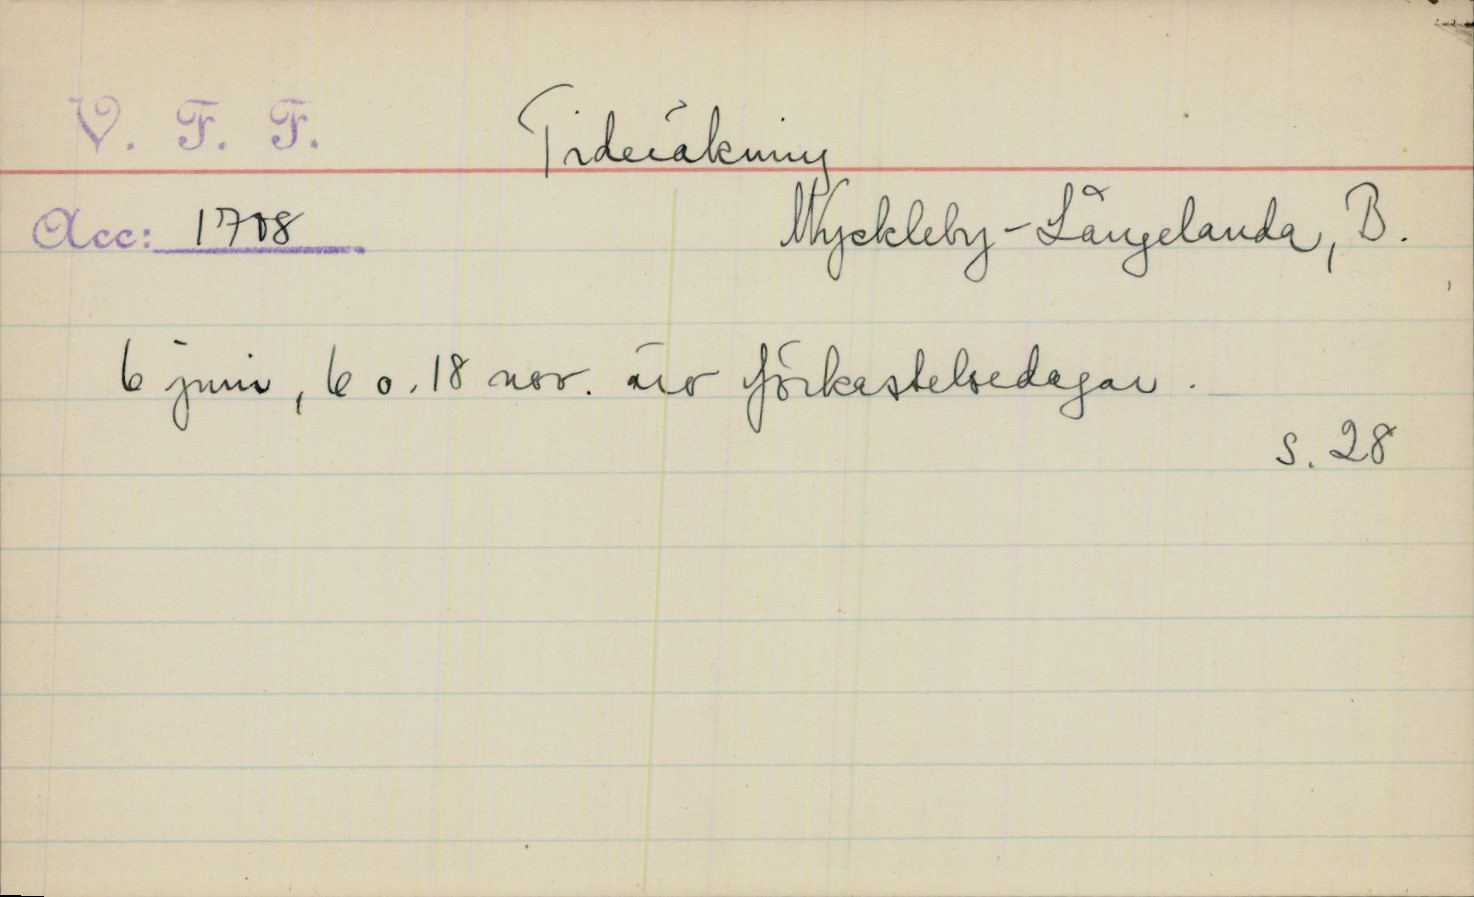 V. F. F.
Tideräkning
Acc: 1708
Myckleby-Långelanda, B.
6 juni, 6 o. 18 nov. äro förkastelsedagar.
s. 28